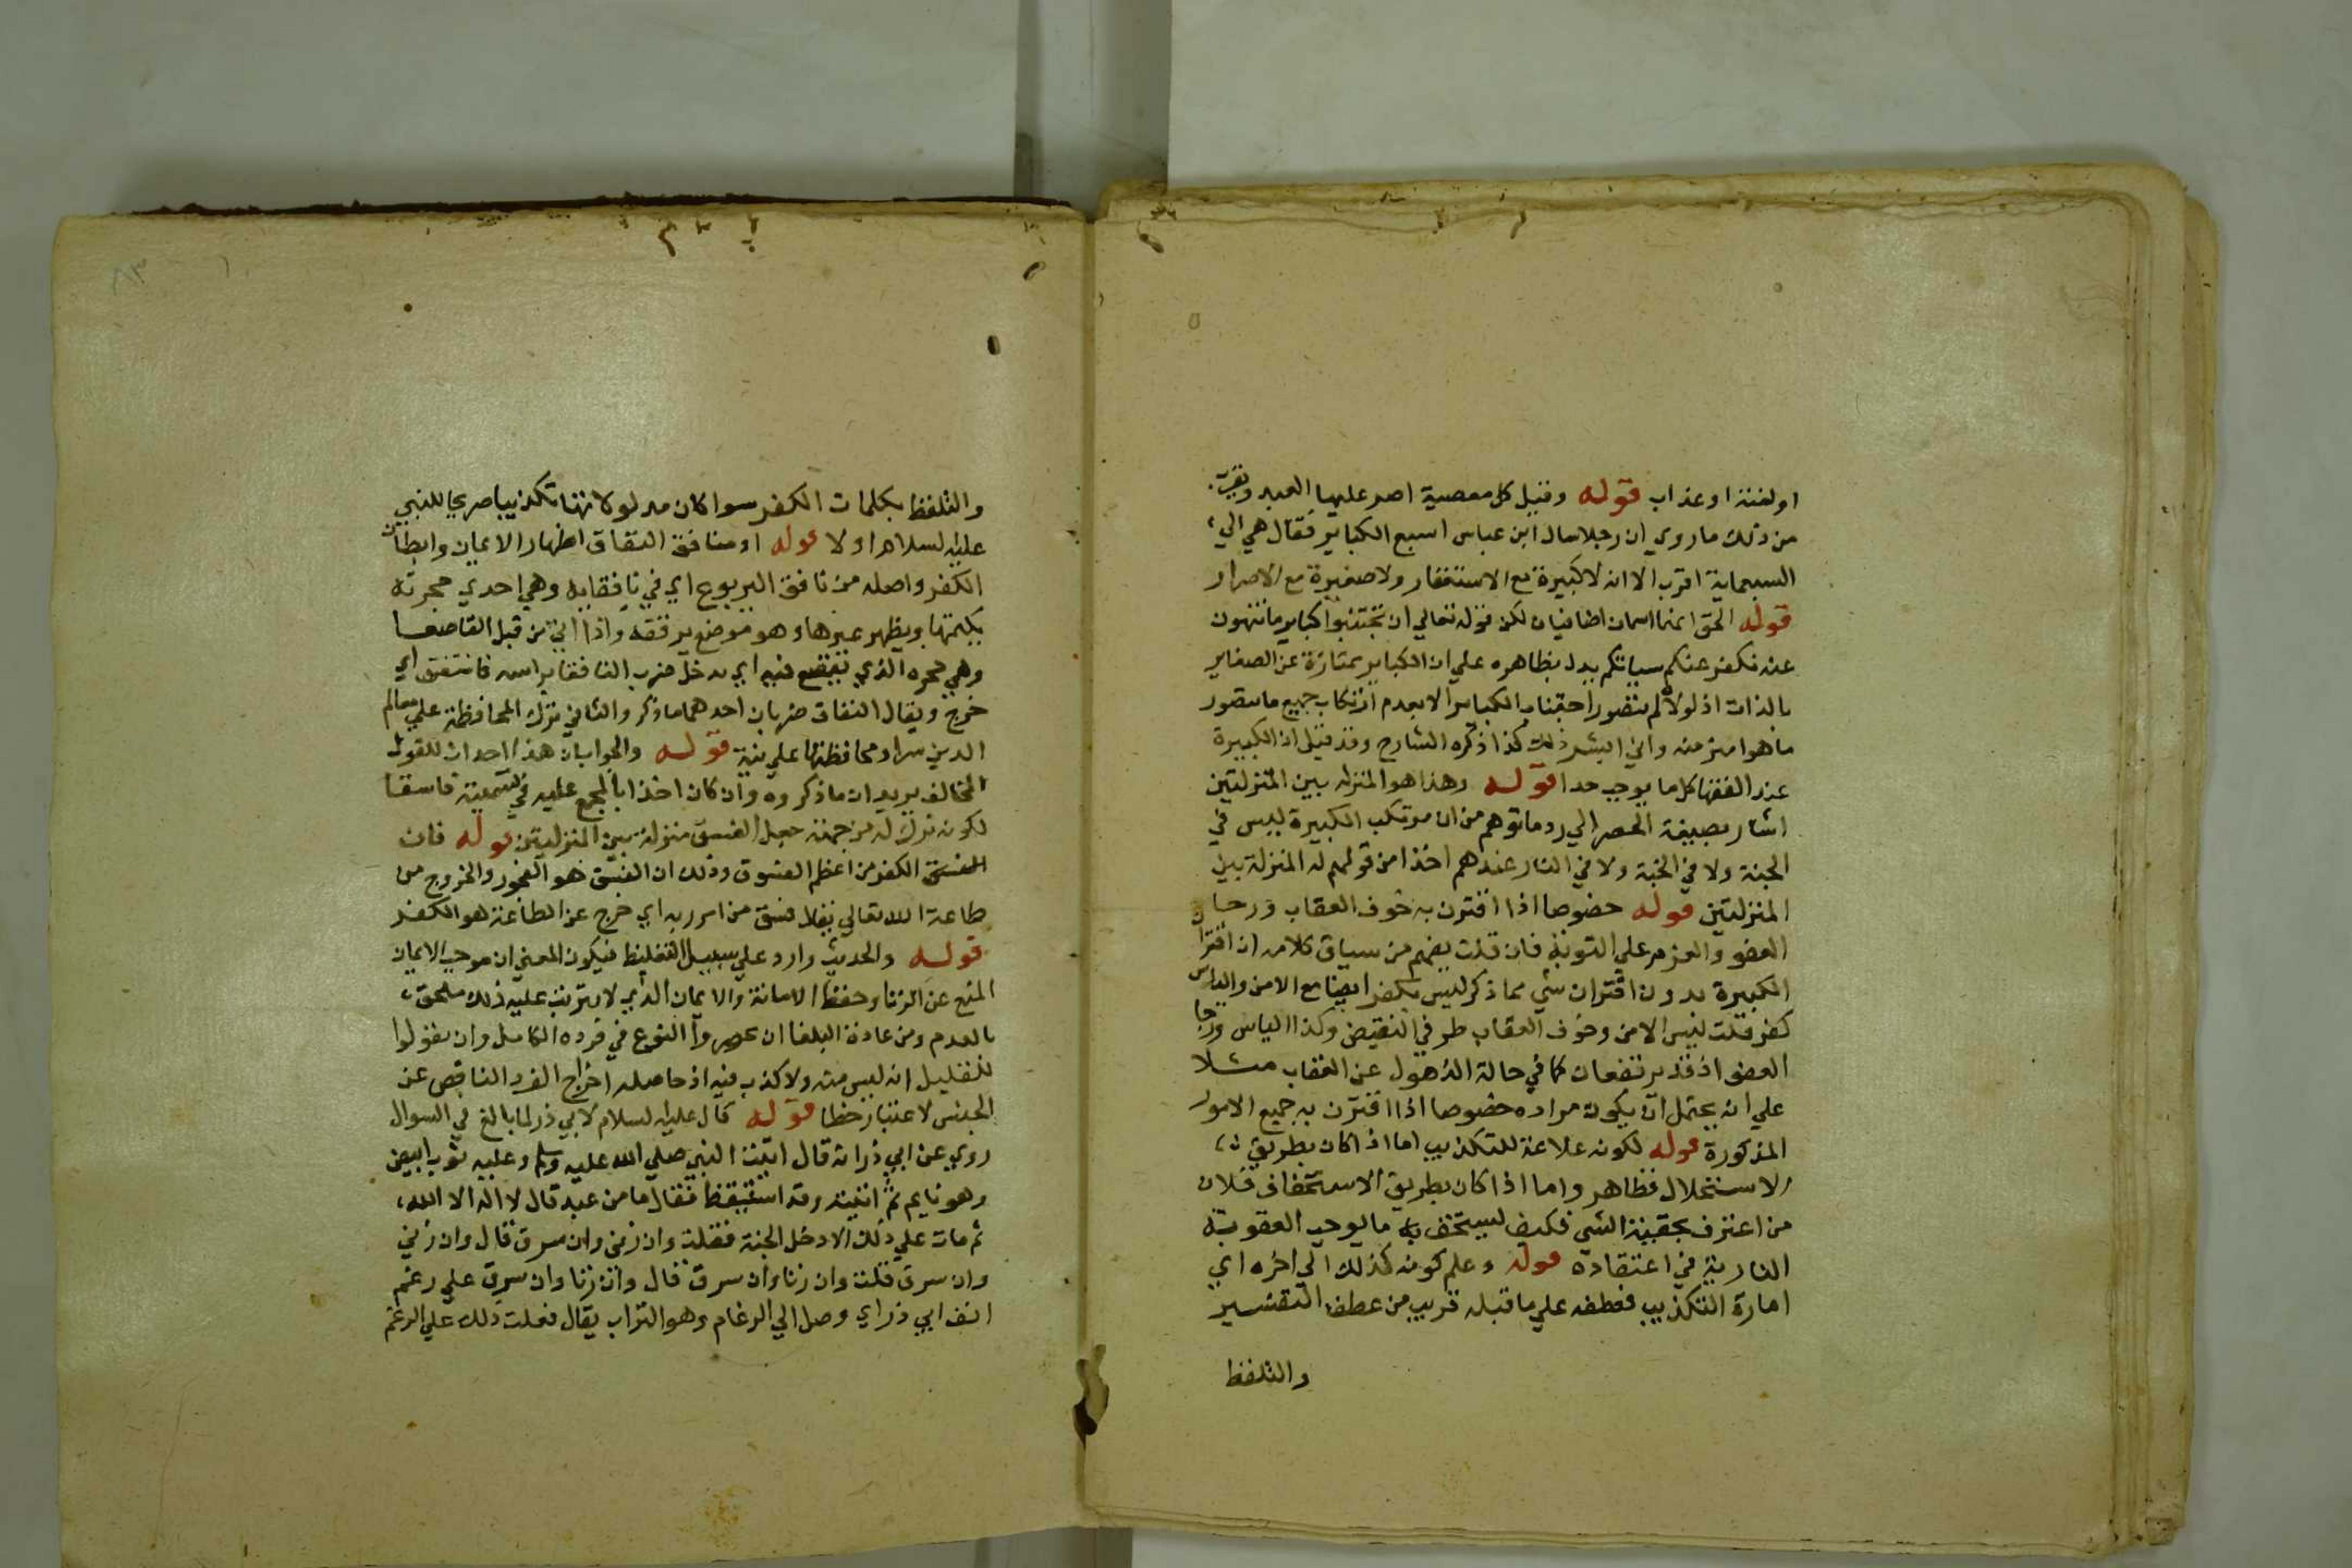 او لعنة او عذاب قوله وقيل كل معصية اصر عليها العبد ويقرب
من ذلك ما روي ان رجلا سال ابن عباس اسبع الكباير فقال هي الي
السبعماية اقرب الا انه لا كبيرة مع الاستغفار ولا صغيرة مع الاصرار
قوله الحق انهما اسمان اضافيان لكن قوله تعالي ان تجتنبوا كباير ما تنهون
عنه نكفر عنكم سياتكم يدل بظاهره علي ان الكباير ممتازة عن الصغاير
بالذات اذ لولاه لم يتصور اجتناب الكباير الا بعدم ارتكاب جميع ما يتصور
ما هو اصغر منه واني البشر ذلك كذا ذكره الشارح وقد قيل ان الكبيرة
عند الفقها كل ما يوجب حدا قوله وهذا هو المنزله بين المنزلتين
اشار بصيغة الحصر الي رد ما توهم من ان مرتكب الكبيرة ليس في
الجنة ولا في النار عندهم اخذا من قولهم له المنزلة بين
المنزلتين قوله خصوصا اذا اقترن به خوف العقاب ورجا
العفو والعزم علي التوبة فان قلت يفهم من سياق كلامه ان اقتران
الكبيرة بدون اقتران شي مما ذكر ليس بكفر ايضا مع الامن والياس
كفر قلت ليس الامن وخوف العقاب طرفي النقيض وكذا الياس ورجا
العفو اذ قد يرتفعان كما في حالة الذهول عن العقاب مثلا
علي انه يحتمل ان يكون مراده خصوصا اذا اقترن به جميع الامور
المذكورة قوله لكونه علامة للتكذيب اما اذا كان بطريق
الاستحلال فظاهر واما اذا كان بطريق الاستخفاف فلان
من اعترف بحقية الشي فكيف ليستخف به ما يوجب العقوبة
النارية في اعتقاده قوله وعلم كونه كذلك الي اخره اي
امارة التكذيب فعطفه علي ما قبله قريب من عطف التفسير
والتلفظ
والتلفظ بكلمات الكفر سوا كان مدلولاتها تكذيبا صريحا للنبي
عليه السلام اولا قوله او منافق النفاق اظهار الايمان وابطان
الكفر واصله من نافق اليربوع اي في نافقايه وهي احدي جحرته
يكتمها ويظهر غيرها وهو موضع يرققه واذا اتي من قبل القاصعا
وهي جحره الذي تقصع فيه اي يدخل ضرب النافقا براسه فانتفق اي
خرج ويقال النفاق ضربان احدهما ما ذكر والثاني ترك المحافظة علي معالم
الدين سرا ومحافظتها علي نية قوله والجواب ان هذا احداث للقول
المخالف يريد ان ما ذكروه وان كان اخذا بالمجمع عليه في تسميته فاسقا
لكونه ترك له من جهة جعل الفسق منزلة بين المنزلتين قوله فان
الكفر من اعظم الفسوق وذلك ان الفسق هو الفجور والخروج من
طاعة الله تعالي يقال فسق من امر ربه اي خرج عن الطاعة هو الكفر
قوله والحديث وارد علي سبيل التغليظ فيكون المعني ان موجب الايمان
المنع عن الزنا وحفظ الامانة والايمان الذي لا يترتب عليه ذلك ملحق
بالعدم ومن عادة البلغا ان يحصروا النوع في فرده الكامل وان يقولوا
للقليل انه ليس منه ولا كذب فيه اذ حاصله اخراج الفرد الناقص عن
الجنس لاعتبار خطا قوله قال عليه السلام لابي ذر لما بالغ في السوال
روي عن ابي ذر انه قال اتيت النبي صلي الله عليه وسلم وعليه ثوب ابيض
وهو نايم ثم اتيته وقد استيقظ فقال ما من عبد قال لا اله الا الله
ثم مات علي ذلك الا دخل الجنة فقلت وان زني وان سرق قال وان زني
وان سرق قلت وان زنا وان سرق قال وان زنا وان سرق علي رغم
انف ابي ذر اي وصل الي الرغام وهو التراب يقال فعلت ذلك علي الرغم